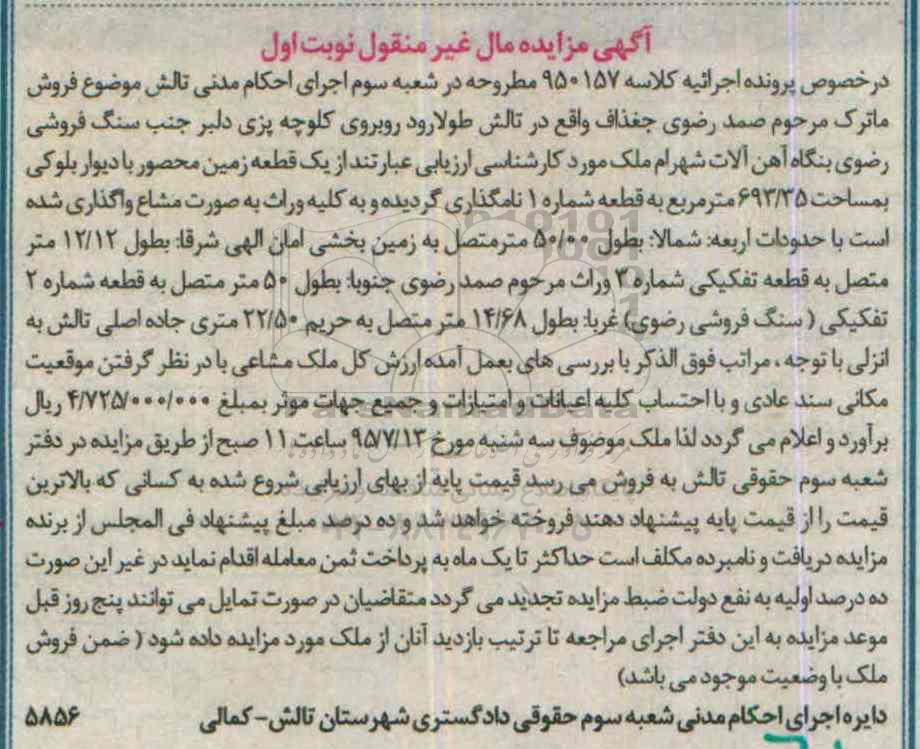 آگهی مزایده مال غیر منقول نوبت اول
درخصوص پرونده اجرائیه کلاسه ۹۵۰۱۵۷ مطروحه در شعبه سوم اجرای احکام مدنی تالش موضوع فروش
ماترک مرحوم صمد رضوی جغذاف واقع در تالش طولارود روبروی کلوچه پزی دلبر جنب سنگ فروشی
رضوی بنگاه آهن آلات شهرام ملک مورد کارشناسی ارزیابی عبارتند از یک قطعه زمین محصور با دیوار بلوکی
بمساحت ۶۹۳/۳۵ مترمربع به قطعه شماره ۱ نامگذاری گردیده و به کلیه وراث به صورت مشاع واگذاری شده
است با حدودات اربعه: شمالا: بطول ۵۰/۰۰ مترمتصل به زمین بخشی امان الهی شرقا: بطول ۱۲/۱۲ متر
متصل به قطعه تفکیکی شماره ۳ وراث مرحوم صمد رضوی جنوبا: بطول ۵۰ متر متصل به قطعه شماره ۲
تفکیکی ( سنگ فروشی رضوی) غربا: بطول ۱۴/۶۸ متر متصل به حریم ۲۲/۵۰ متری جاده اصلی تالش به
انزلی با توجه ، مراتب فوق الذکر با بررسی های بعمل آمده ارزش کل ملک مشاعی با در نظر گرفتن موقعیت
مکانی سند عادی و با احتساب کلیه اعیانات و امتیازات و جمیع جهات موثر بمبلغ ۴/۷۲۵/۰۰۰/۰۰۰ ریال
برآورد و اعلام می گردد لذا ملک موضوف سه شنبه مورخ ۹۵/۷/۱۳ ساعت ۱۱ صبح از طریق مزایده در دفتر
شعبه سوم حقوقی تالش به فروش می رسد قیمت پایه از بهای ارزیابی شروع شده به کسانی که بالاترین
قیمت را از قیمت پایه پیشنهاد دهند فروخته خواهد شد و ده درصد مبلغ پیشنهاد فی المجلس از برنده
مزایده دریافت و نامبرده مکلف است حداکثر تا یک ماه به پرداخت ثمن معامله اقدام نماید در غیر این صورت
ده درصد اولیه به نفع دولت ضبط مزایده تجدید می گردد متقاضیان در صورت تمایل می توانند پنج روز قبل
موعد مزایده به این دفتر اجرای مراجعه تا ترتیب بازدید آنان از ملک مورد مزایده داده شود ( ضمن فروش
ملک با وضعیت موجود می باشد)
دایره اجرای احکام مدنی شعبه سوم حقوقی دادگستری شهرستان تالش- کمالی ۵۸۵۶